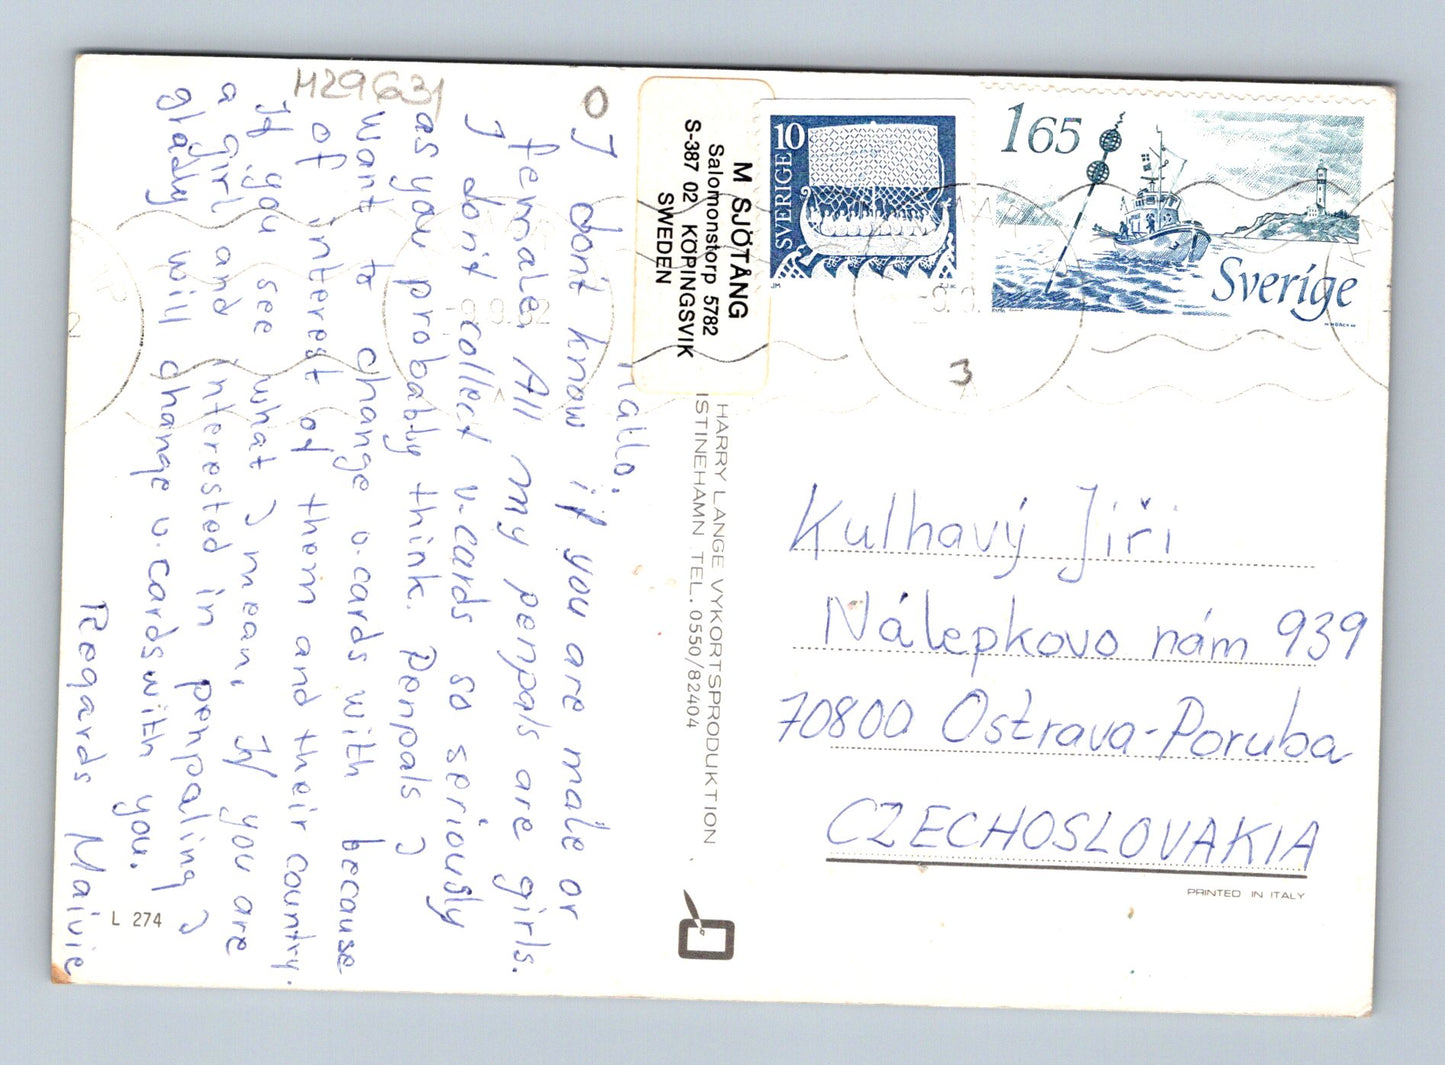 H29631
O
Hallo.
I don't know if you are male or
female. All my penpals are girls.
I don't collect v-cards so seriously
as you probably think. Penpals I
want to change v.cards with because
of interest of them and their country.
If you see what I mean. If you are
a girl and interested in penpaling I
gladly will change v.cards with you.
Regards Maivie
L 274
M SJÖTÅNG
Salomonstorp 5782
S-387 02 KÖPINGSVIK
SWEDEN
HARRY LANGE VYKORTSPRODUKTION
ISTINEHAMN TEL. 0550/82404
10
SVERIGE
JM
165
Sverige
-9.9.82
-9.9.
3
Kulhavý Jiří
Nálepkovo nám 939
70800 Ostrava-Poruba
CZECHOSLOVAKIA
PRINTED IN ITALY